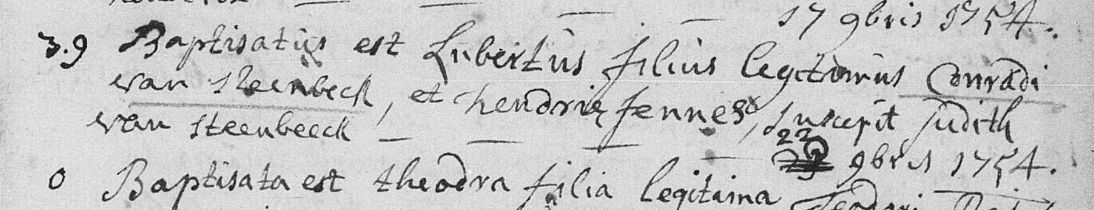 17 9bris 1754.
3.9 Baptisatus est Lubertus filius legitimus Conradi
van Steenbeck, et hendriæ Jennes, suscepit Judith
van steenbeeck
22 9bris 1754.
0 Baptisata est theodra filia legitima